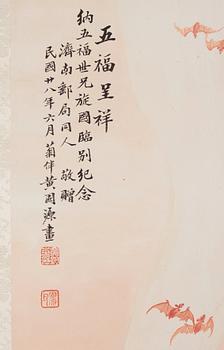 五福呈祥
納五福世兄旋國臨别紀念
濟南郵局同人 敬贈
民國廿八年六月 菊伴黄固源畫